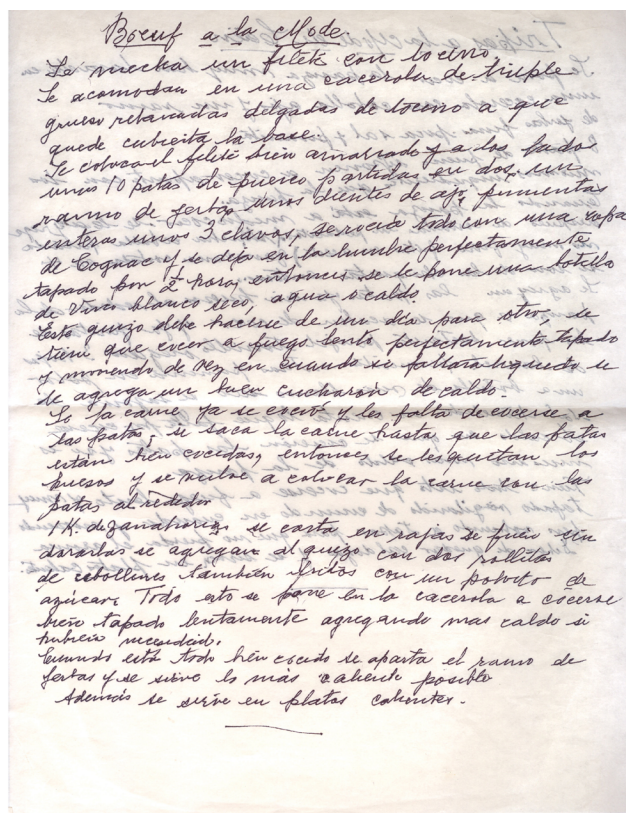 Boeuf a la Mode.
Se mecha un filete con tocino
Se acomodan en una cacerola de triple
grueso rebanadas delgadas de tocino a que
quede cubierta la base.
Se coloca el filete bien amarrado y a los lados
unas 10 patas de puerco partidas en dos, un
ramo de yerbas unos dientes de ajo, pimientas
enteras unos 3 clavos, se rocía todo con una copa
de Cognac y se deja en la lumbre perfectamente
tapado por ½ hora, entonces se le pone una botella
de Vino blanco seco, agua o caldo.
Este guizo debe hacerse de un día para otro, se
tiene que cocer a fuego lento perfectamente tapado
y moviendo de vez en cuando si faltara liquido se
le agrega un buen cucharón de caldo.
Si la carne ya se coció y les falta de cocerse a
las patas, se saca la carne hasta que las patas
están bien cocidas, entonces se les quitan los
huesos y se vuelve a colocar la carne con las
patas al rededor
1 K. de zanahorias se corta en rajas se fríen sin
dorarlas se agregan al guizo con dos rollitos
de cebollines también fritos con un polvito de
azúcar. Todo esto se pone en la cacerola a cocerse
bien tapado lentamente agregando mas caldo si
hubiera necesidad.
Cuando está todo bien cocido se aparta el ramo de
yerbas y se sirve lo más caliente posible
Además se sirve en platos calientes.